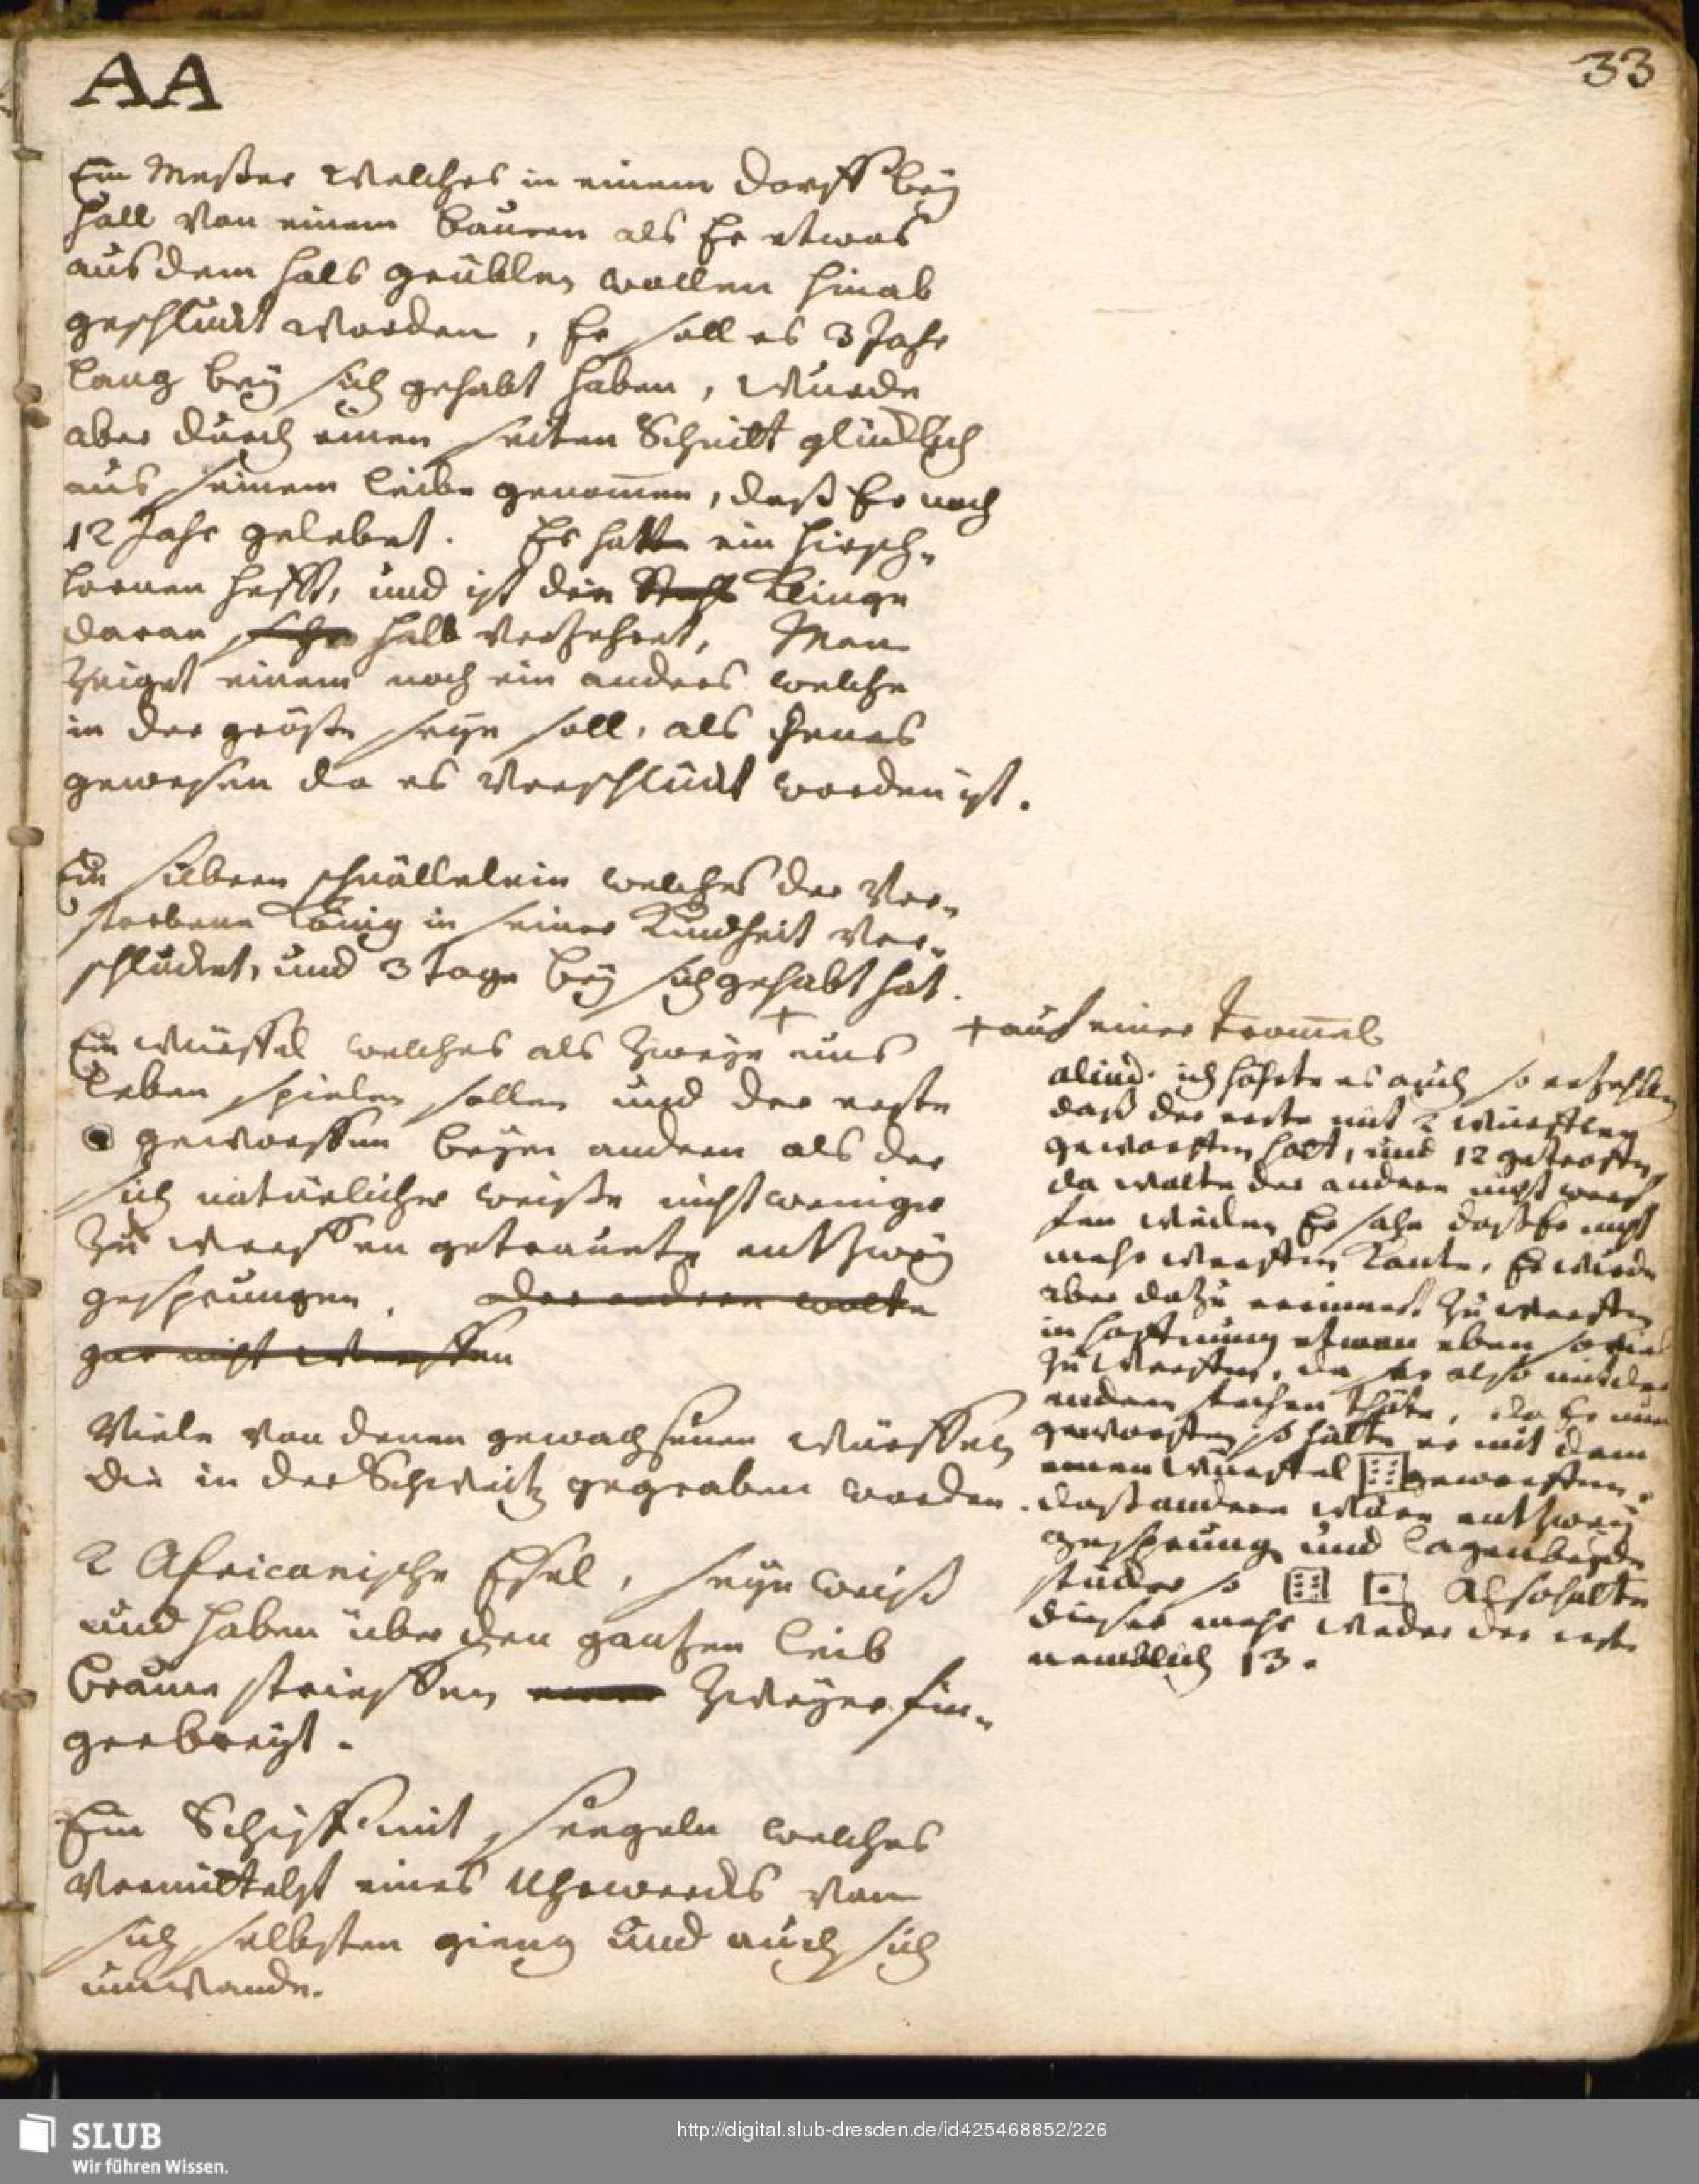 AA
33
Ein Meßer welches in einem Dorff beÿ
Hall von einem Bauren als Er etwas
aus dem Hals grüblen wollen hinab
geschluckt worden, Er soll es 3 Jahr
lang beÿ sich gehabt haben, wurde
aber durch einen seiten Schnitt glücklich
aus seinem leibe genom̅en, daß Er noch
12 Jahr gelebet. Es hatte ein Hirsch-
hornen hefft, und ist die Klinge
daran halb verzehret, Man
zeiget einem noch ein anders welche
in der größe seÿn soll, als Jenes
gewesen da es verschluckt worden ist.
Ein silbern schnällelein welches der ver-
storbene König in seiner Kindheit ver-
schlucket, und 3 tage beÿ sich gehabt hat.
Ein würffel welches als zweÿe ums +
leben spielen sollen und der erste
geworffen beÿm andern als der
sich natürlicher weiße nicht weniger
zu werffen getrauete entzweÿ
gesprungen. der andere wolte
gar nicht werffen
+ auf einer Trom̅el
aliud. ich hörte es auch so erzehlen
daß der erste mit 2 würfflen
geworffen hatt, und 12 getroffen,
da wolte der andere nicht werf
fen weilen Er sahe daß Er nicht
mehr werffen konte, Er wurde
aber dazu ermuntert zu werffen
in hoffnung etwan eben so viel
zu werffen, da er also mit der
andern thäte, da Er nun
geworffen so hatte er mit dem
einen würffel ⚅ geworffen,
daß andere ware entzweÿ
gesprung und lagen beÿde
stücker so ⚅ ⚀ Also hatte
dieser mehr weder der erste
nemblich 13.
Viele von denen gewachsenen würfflen
die in der Schweitz gegraben worden.
2 Africanische Esel, seÿn weiß
und haben über den gantzen leib
braune strieffen zweÿer fin-
gerbreyt.
Ein Schiff mit Seegeln welches
vermittelst eines Uhrwercks von
sich selbsten gieng und auch sich
umwande.
SLUB
Wir führen Wissen.
http://digital.slub-dresden.de/id425468852/226